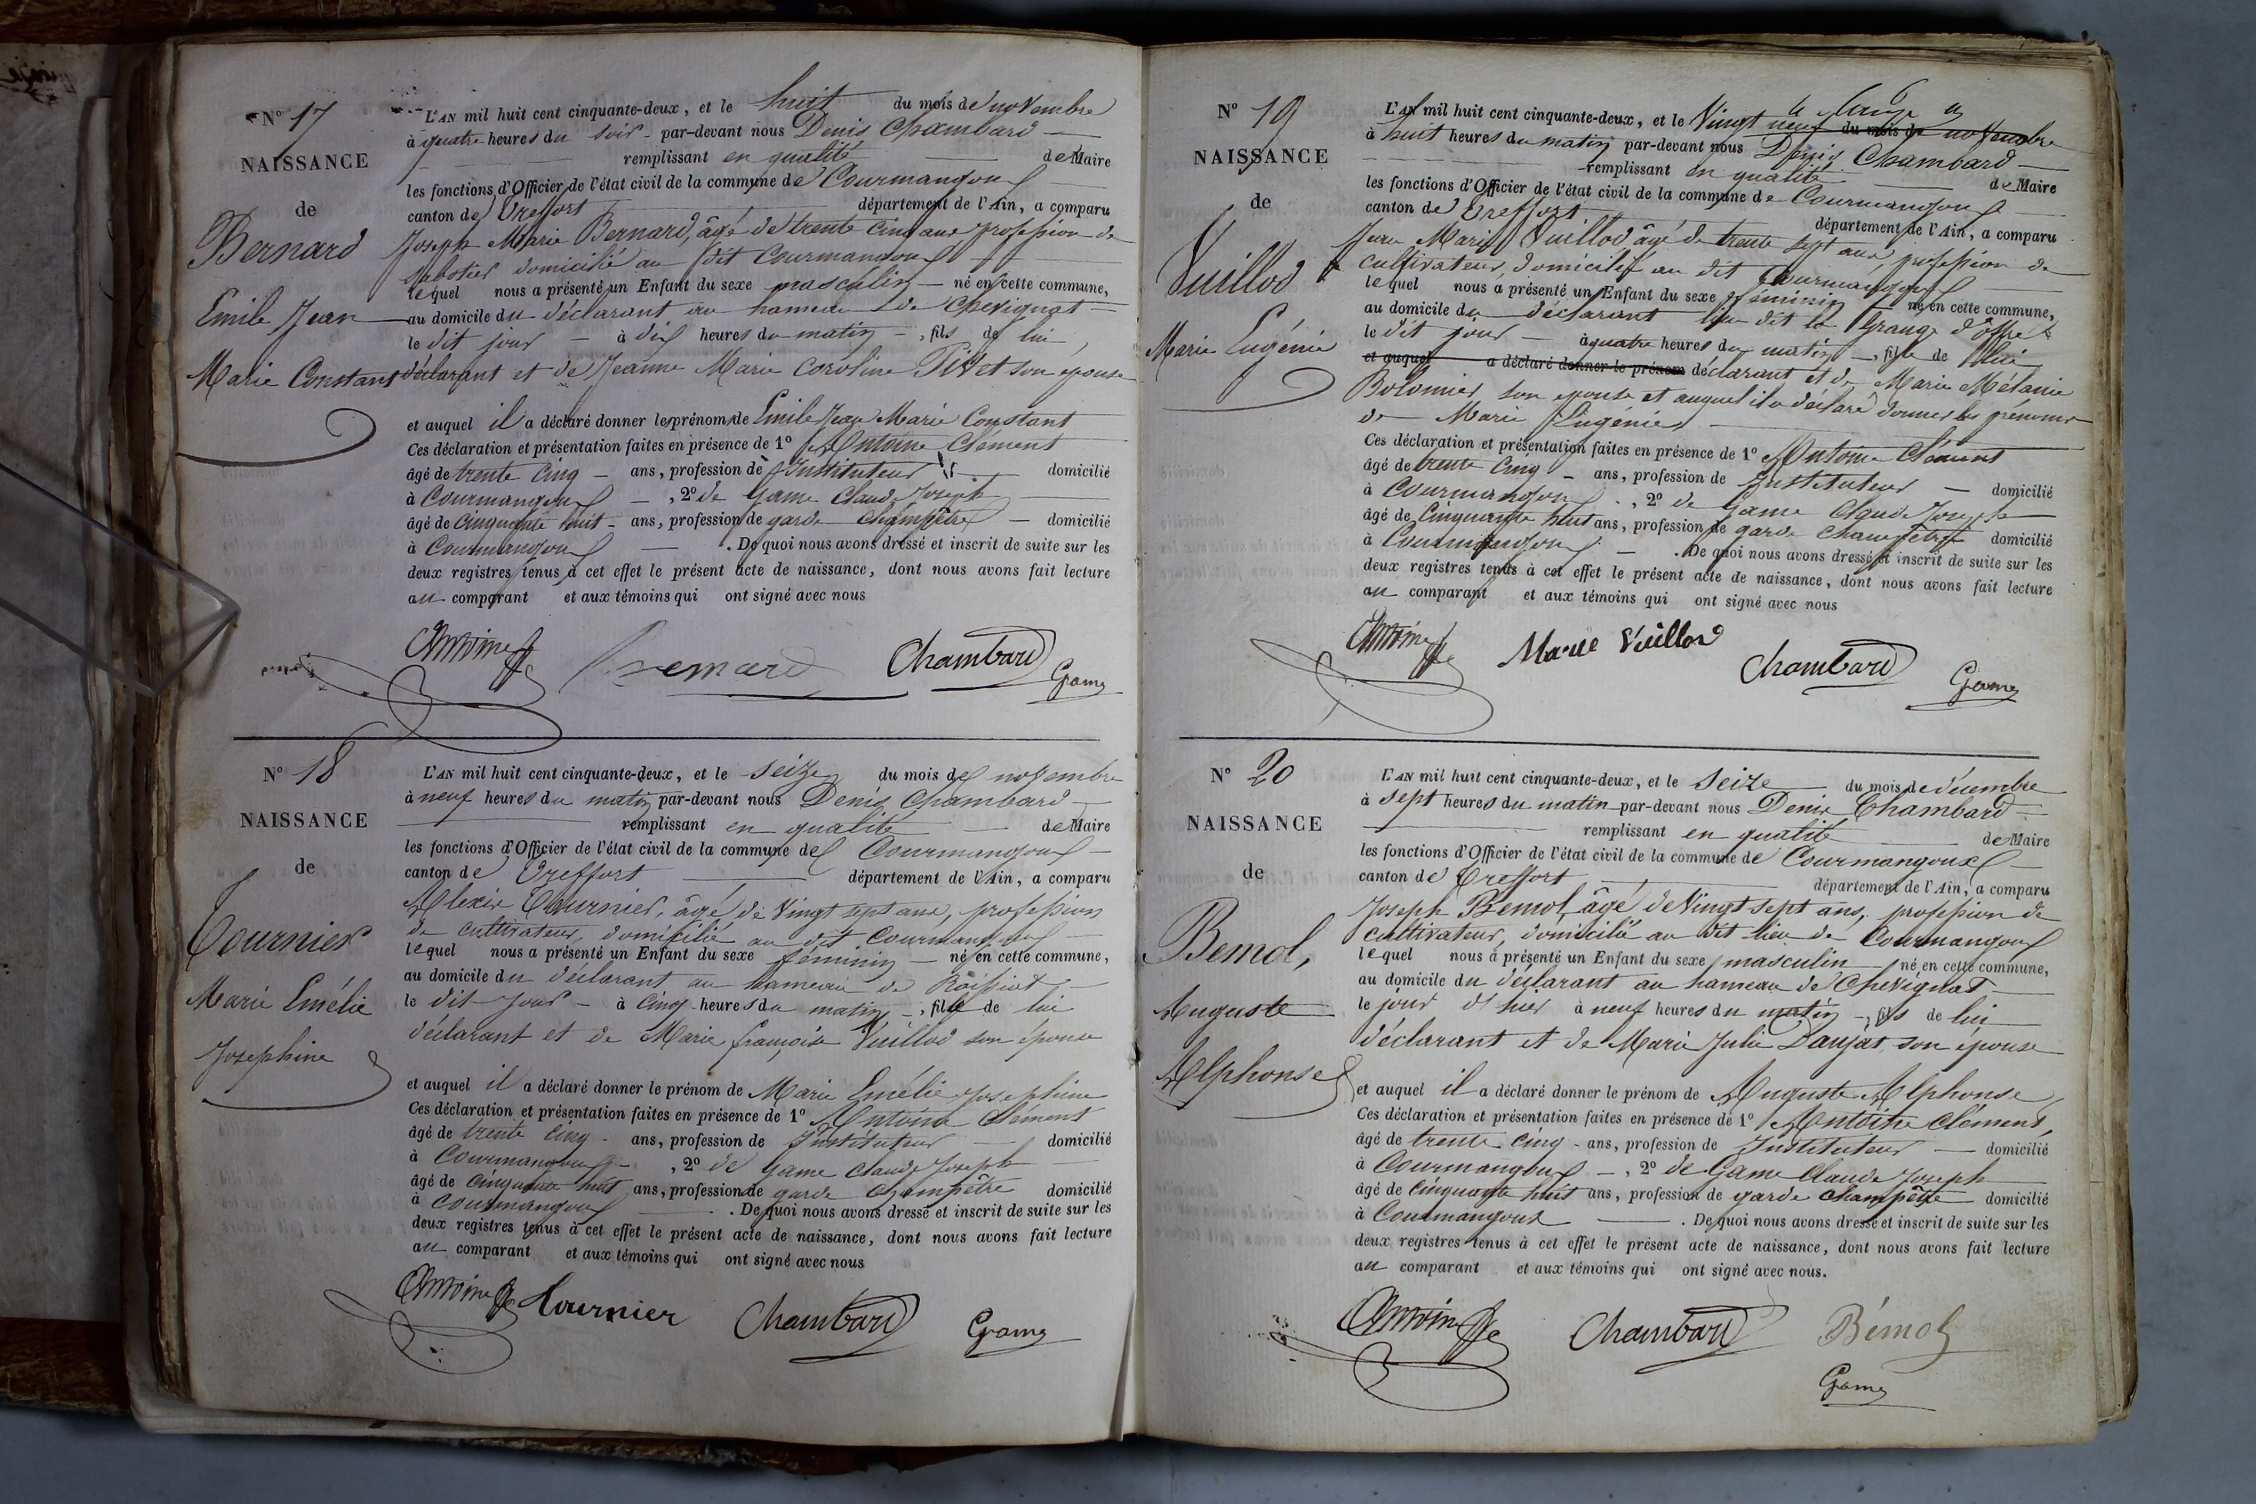 N° 17
NAISSANCE
de
Bernard
Emile Jean
Marie Constant
L'AN mil huit cent cinquante-deux, et le huit du mois de novembre
à quatre heures du soir par-devant nous Denis Chambard
remplissant en qualité de Maire
les fonctions d'Officier de l'état civil de la commune de Courmangoux
canton de Treffort département de l'Ain, a comparu
Joseph Marie Bernard, âgé de trente cinq ans profession de
sabotier domicilié au dit Courmangoux
lequel nous a présenté un Enfant du sexe masculin né en cette commune,
au domicile du déclarant au hameau de Chevignat
le dit jour à dix heures du matin, fils de lui
déclarant et de Jeanne Marie Caroline son épouse
et auquel il a déclaré donner les prénoms de Emile Jean Marie Constant
Ces déclaration et présentation faites en présence de 1° Antoine Clément
âgé de trente cinq ans, profession de Instituteur domicilié
à Courmangoux, 2° de Game Claude Joseph
âgé de cinquante huit ans, profession de garde champêtre domicilié
à Courmangoux. De quoi nous avons dressé et inscrit de suite sur les
deux registres tenus à cet effet le présent acte de naissance, dont nous avons fait lecture
au comparant et aux témoins qui ont signé avec nous
Antoine Bernard Chambard Game
N° 18
NAISSANCE
de
Tournier
Marie Emélie
Josephine
L'AN mil huit cent cinquante-deux, et le seize du mois de novembre
à neuf heures du matin par-devant nous Denis Chambard
remplissant en qualité de Maire
les fonctions d'Officier de l'état civil de la commune de Courmangoux
canton de Treffort département de l'Ain, a comparu
Alexis Tournier, âgé de vingt sept ans, profession
de cultivateur, domicilié au dit Courmangoux
lequel nous a présenté un Enfant du sexe féminin né en cette commune,
au domicile du déclarant au hameau de Roissiat
le dit jour à cinq heures du matin, fille de lui
déclarant et de Marie françoise Vuillod son épouse
et auquel il a déclaré donner le prénom de Marie Emélie Josephine
Ces déclaration et présentation faites en présence de 1° Antoine Clément
âgé de trente cinq ans, profession de Instituteur domicilié
à Courmangoux, 2° de Game Claude Joseph
âgé de cinquante huit ans, profession de garde champêtre domicilié
à Courmangoux. De quoi nous avons dressé et inscrit de suite sur les
deux registres tenus à cet effet le présent acte de naissance, dont nous avons fait lecture
au comparant et aux témoins qui ont signé avec nous
Antoine Tournier Chambard Game
N° 19
NAISSANCE
de
Vuillod
Marie Eugénie
L'AN mil huit cent cinquante-deux, et le Vingt neuf du mois de novembre
à huit heures du matin par-devant nous Denis Chambard
remplissant en qualité de Maire
les fonctions d'Officier de l'état civil de la commune de Courmangoux
canton de Treffort département de l'Ain, a comparu
Marie Vuillod âgé de trente sept ans, profession de
cultivateur, domicilié au dit Courmangoux
lequel nous a présenté un Enfant du sexe féminin né en cette commune,
au domicile du déclarant lieu dit la Grange
le dit jour à quatre heures du matin, fille de lui
et auquel a déclaré donner le prénom déclarant et de Marie Mélanie
Bolomier son épouse et auquel il a déclaré donner les prénoms
de Marie Eugénie
Ces déclaration et présentation faites en présence de 1° Antoine Clément
âgé de trente cinq ans, profession de Instituteur domicilié
à Courmangoux, 2° de Game Claude Joseph
âgé de Cinquante huit ans, profession de garde champêtre domicilié
à Courmangoux. De quoi nous avons dressé et inscrit de suite sur les
deux registres tenus à cet effet le présent acte de naissance, dont nous avons fait lecture
au comparant et aux témoins qui ont signé avec nous
Antoine Marie Vuillod Chambard Game
N° 20
NAISSANCE
de
Bemol,
Auguste
Alphonse
L'AN mil huit cent cinquante-deux, et le seize du mois de décembre
à sept heures du matin par-devant nous Denis Chambard
remplissant en qualité de Maire
les fonctions d'Officier de l'état civil de la commune de Courmangoux
canton de Treffort département de l'Ain, a comparu
Joseph Bemol, âgé de vingt sept ans, profession de
cultivateur, domicilié au dit lieu de Courmangoux
lequel nous a présenté un Enfant du sexe masculin né en cette commune,
au domicile du déclarant au hameau de Chevignat
le jour d'hier à neuf heures du matin, fils de lui
déclarant et de Marie Julie Daujat son épouse
et auquel il a déclaré donner le prénom de Auguste Alphonse
Ces déclaration et présentation faites en présence de 1° Antoine Clément,
âgé de trente cinq ans, profession de Instituteur domicilié
à Courmangoux, 2° de Game Claude Joseph
âgé de cinquante huit ans, profession de garde champêtre domicilié
à Courmangoux. De quoi nous avons dressé et inscrit de suite sur les
deux registres tenus à cet effet le présent acte de naissance, dont nous avons fait lecture
au comparant et aux témoins qui ont signé avec nous.
Antoine Chambard Bémol
Game